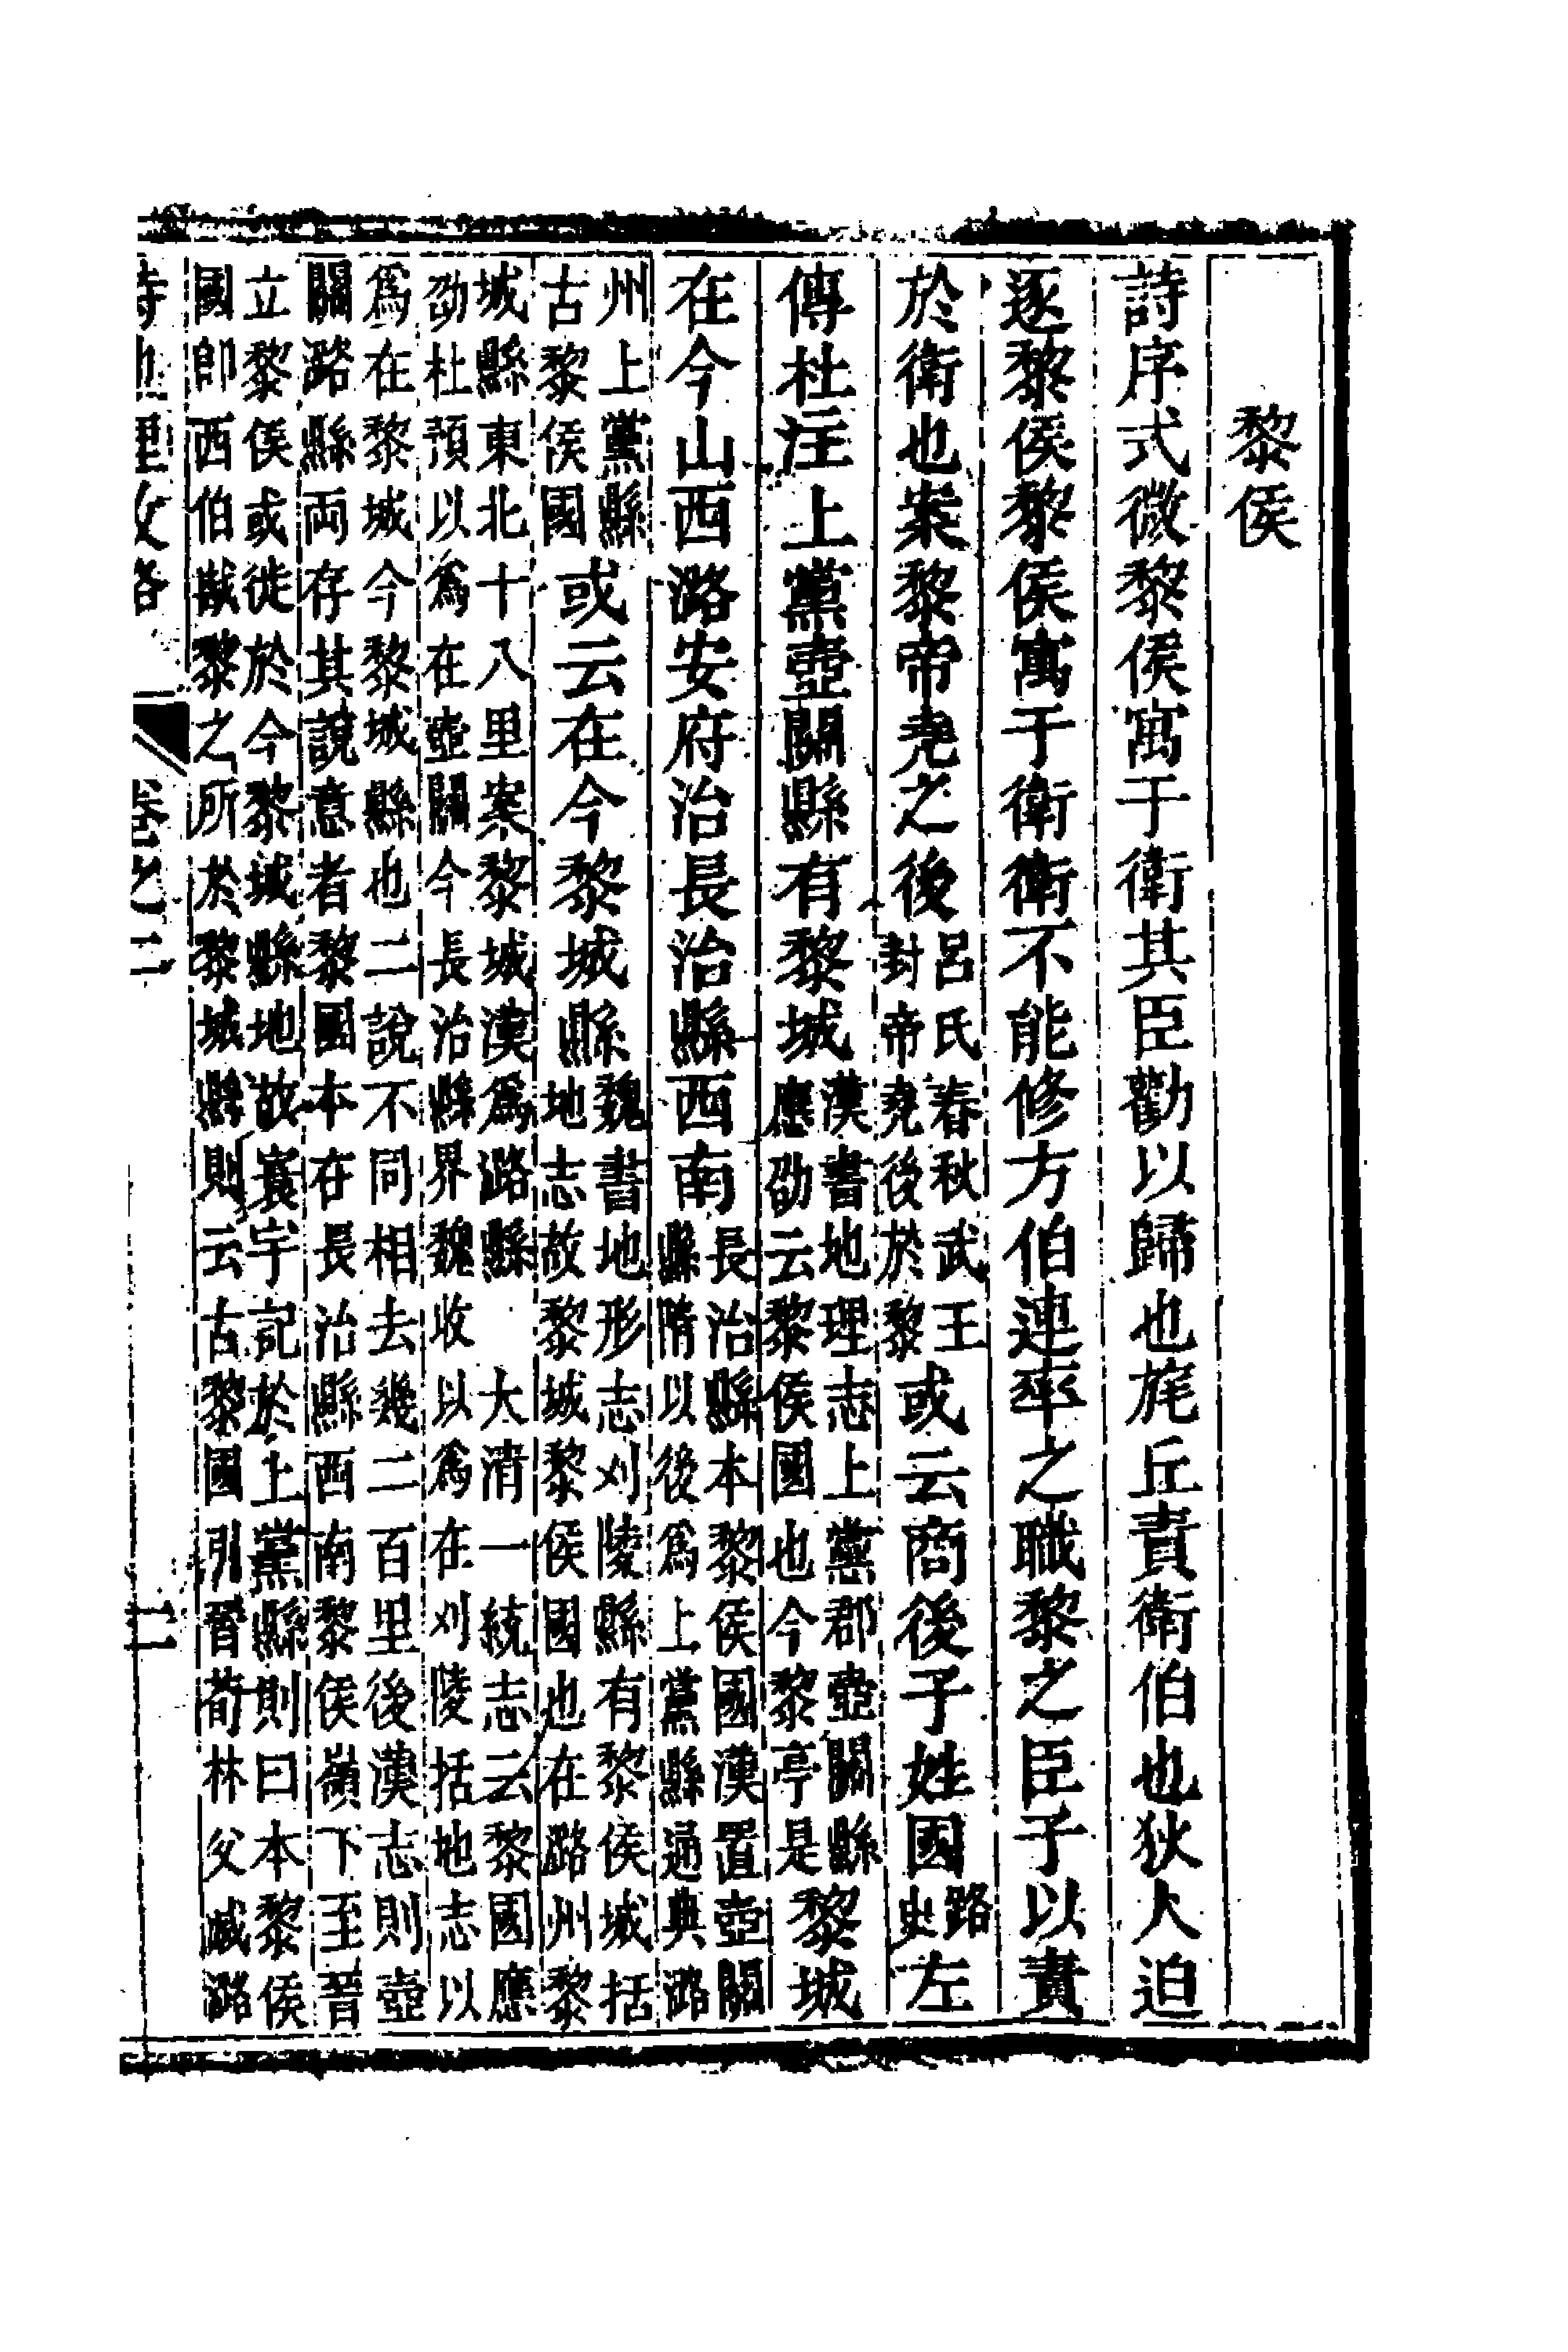 黎侯
詩序式微黎侯寓于衛其臣勸以歸也旄丘責衛伯也狄人迫
逐黎侯黎侯寓于衛衛不能修方伯連率之職黎之臣子以責
於衛也案黎帝堯之後呂氏春秋武王封帝堯後於黎或云商後子姓國路史左
傳杜注上黨壺關縣有黎城漢書地理志上黨郡壺關縣應劭云黎侯國也今黎亭是黎城
在今山西潞安府治長治縣西南長治縣本黎侯國漢置壺關縣隋以後爲上黨縣通典潞
州上黨縣古黎侯國或云在今黎城縣魏書地形志刈陵縣有黎侯城括地志故黎城黎侯國也在潞州黎
城縣東北十八里案黎城漢爲潞縣 大清一統志云黎國應
劭杜預以爲在壺關今長治縣界魏收以爲在刈陵括地志以
爲在黎城今黎城縣也二說不同相去幾二百里後漢志則壺
關潞縣兩存其說意者黎國本在長治縣西南黎侯嶺下至晉
立黎侯或徙於今黎城縣地故寰宇記於上黨縣則曰本黎侯
國卽西伯戡黎之所於黎城縣則云古黎國引晉荀林父滅潞
詩地理攷略 卷之二 二